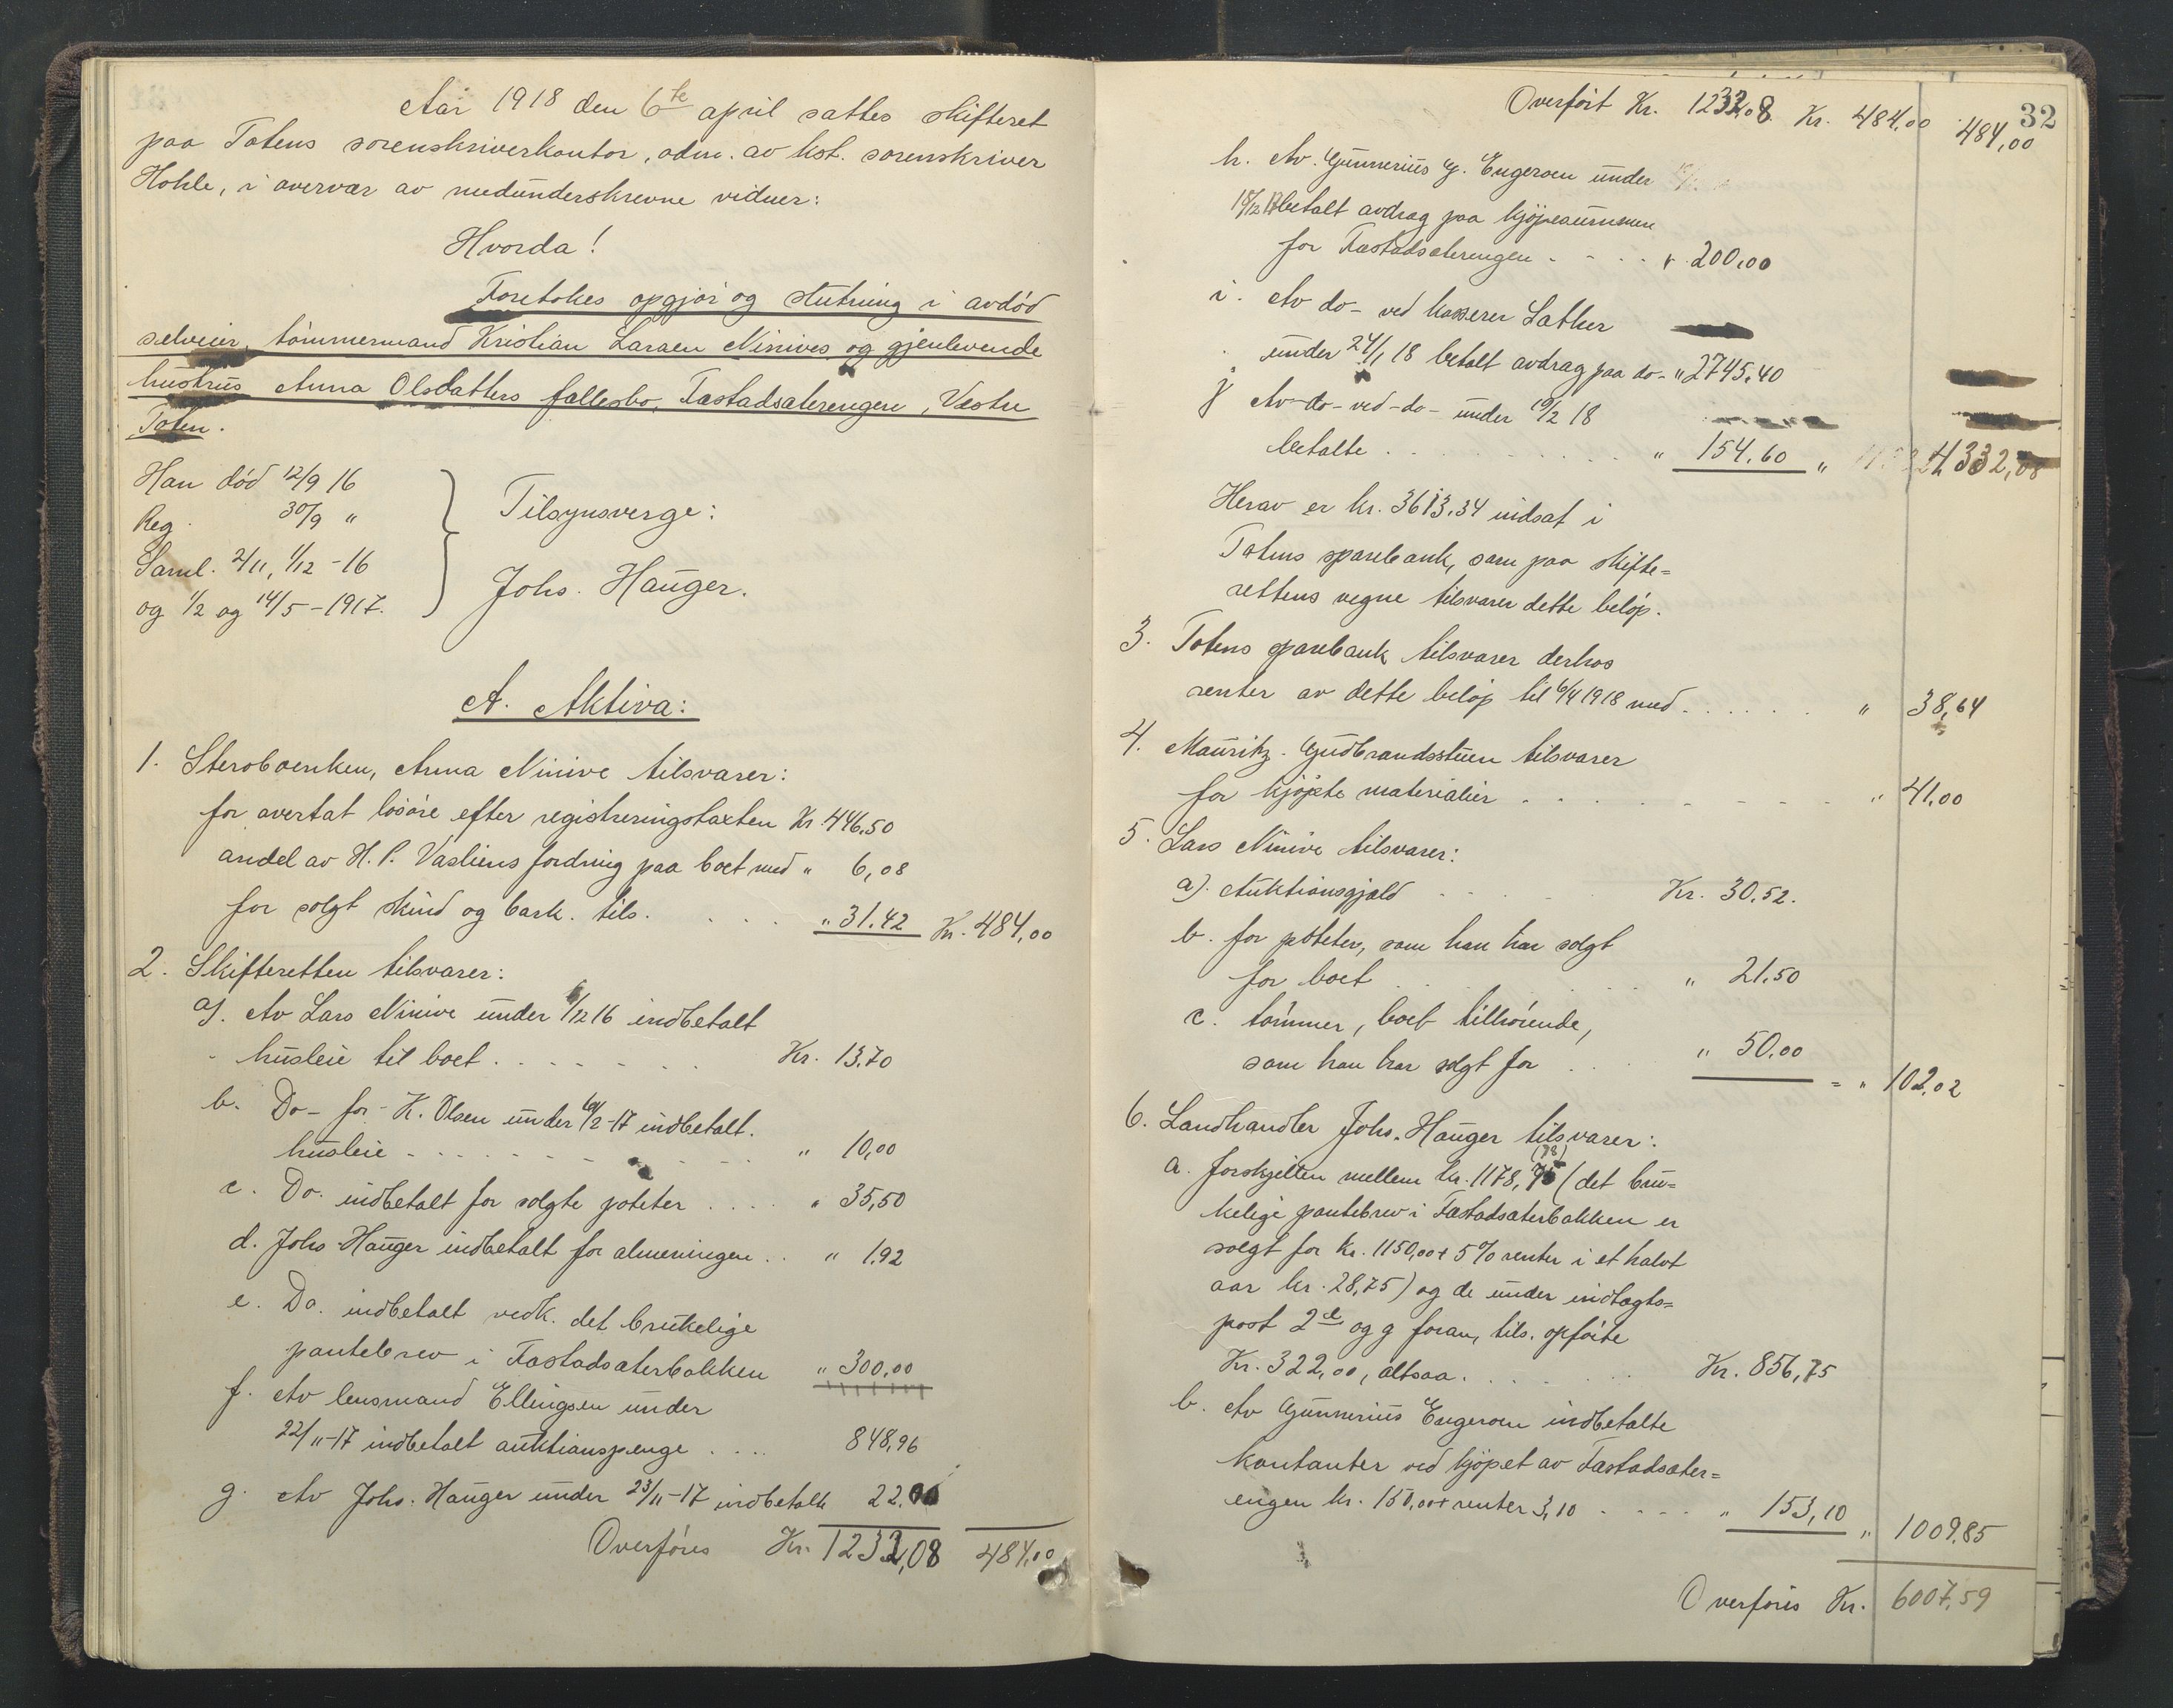 Aar 1918 den 6te april sattes skifteret
paa Totens sorenskriverkontor, adm. av kst. sorenskriver
Hohle, i overvær av medunderskrevne vidner:
Hvorda!
Foretokes opgjør og slutning i avdød
selveier, tømmermand Kristian Larsen Ninives og gjenlevende
hustrus Anna Olsdatters fællesbo, Fæstadsæterengen, Vestre
Toten.
Han død 12/9 16
Reg. 30/9 "
Saml. 2/11, 1/12 - 16
og 1/2 og 14/5 - 1917.
Tilsynsverge:
Johs. Hauger.
A. Aktiva:
1. Sterboenken, Anna Ninive tilsvarer:
for overtat løsøre efter registreringstaxten Kr. 446,50
andel av H. P. Vasliens fordring paa boet med " 6,08
for solgt skind og bark. tils. . . . . " 31.42 Kr. 484,00
2. Skifteretten tilsvarer:
a). Av Lars Ninive under 1/12 16 indbetalt
husleie til boet . . . . . . Kr. 13,70
b. Do - for - K. Olsen under /2-17 indbetalt.
husleie - . . . . . . . . " 10,00
c. Do. indbetalt for solgte poteter . . . . " 35,50
d. Johs. Hauger indbetalt for almeningen . . " 1,92
e. Do. indbetalt vedk. det brukelige
pantebrev i Fæstadsæterbakken " 300,00
f. Av lensmand Ellingsen under
22/11-17 indbetalt auktionspenge . . . . 848,96
g. Av Johs. Hauger under 23/11-17 indbetalt 22,00
Overføres Kr. 1232,08 484,00
32
Overført Kr. 1232,08 Kr. 484,00 484,00
h. Av Gunnerius G. Engeroen under
18/12 17 betalt avdrag paa kjøpesummen
for Fæstadsæterengen - . . . " 200,00
i. Av do - ved kasserer Sather
under 24/1 18 betalt avdrag paa do - " 2745,40
j Av - do - ved - do - under 19/2 18
betalte . . . . . . . . . " 154,60 " 4332,08
Herav er kr. 3613,34 indsat i
Totens sparebank, som paa skifte=
rettens vegne tilsvarer dette beløp.
3. Totens sparebank tilsvarer derhos
renter av dette beløp til 6/4 1918 med . . . . . . " 38,64
4. Mauritz Gudbrandsstuen tilsvarer
for kjøpte materialier . . . . . . . . . " 41,00
5. Lars Ninive tilsvarer:
a). Auktionsgjæld . . . . Kr. 30,52.
b. for poteter, som han har solgt
for boet . . . . . . . " 21,50
c. tømmer, boet tilhørende,
som han har solgt for . . . " 50,00 = " 102,02
6. Landhandler Johs. Hauger tilsvarer:
(78)
a. forskjellen mellem kr. 1178,75 (det bru=
kelige pantebrev i Fæstadsæterbakken er
solgt for kr. 1150,00 + 5% renter i et halvt
aar kr. 28,75) og de under indtægts=
post 2 e og g foran, tils. opførte
Kr. 322,00, altsaa . . . . . . Kr. 856,75
b. Av Gunnerius Engeroen indbetalte
kontanter ved kjøpet av Fæstadsæter=
engen kr. 150,00 + renter 3,10 - . . . . " 153,10 " 1009,85
Overføres Kr. 6007,59